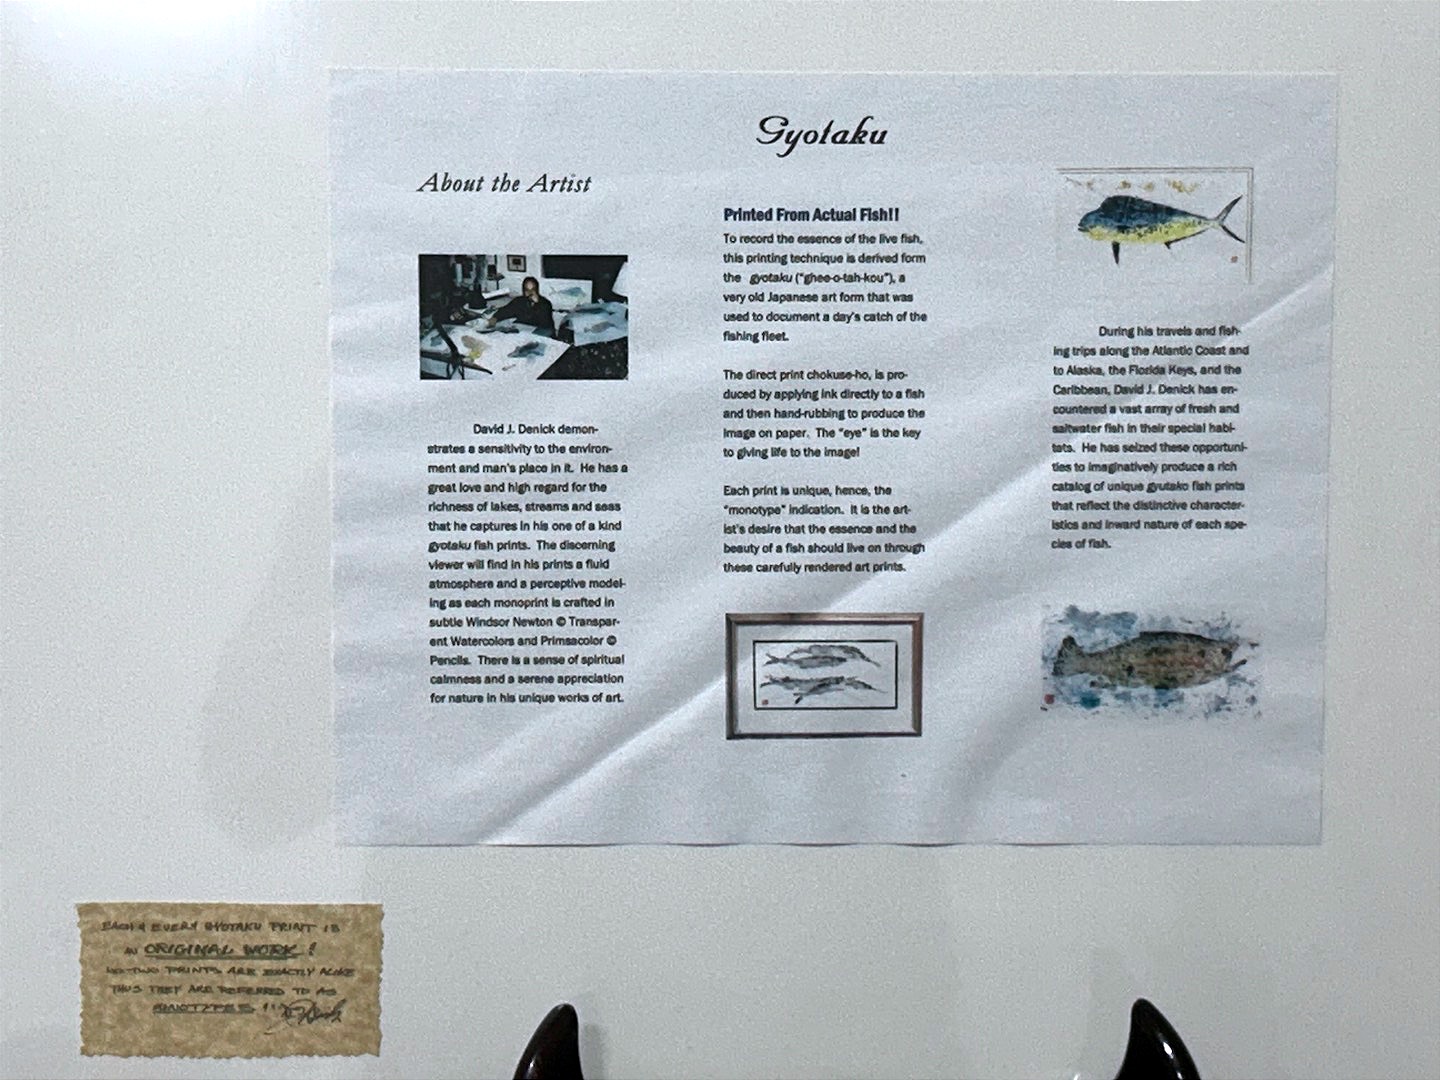 Gyotaku
About the Artist
David J. Denick demon-
strates a sensitivity to the environ-
ment and man's place in it. He has a
great love and high regard for the
richness of lakes, streams and seas
that he captures in his one of a kind
gyotaku fish prints. The discerning
viewer will find in his prints a fluid
atmosphere and a perceptive model-
ing as each monoprint is crafted in
subtle Windsor Newton © Transpar-
ent Watercolors and Primsacolor ©
Pencils. There is a sense of spiritual
calmness and a serene appreciation
for nature in his unique works of art.
Printed From Actual Fish!!
To record the essence of the live fish,
this printing technique is derived form
the gyotaku ("ghee-o-tah-kou"), a
very old Japanese art form that was
used to document a day's catch of the
fishing fleet.
The direct print chokuse-ho, is pro-
duced by applying ink directly to a fish
and then hand-rubbing to produce the
image on paper. The "eye" is the key
to giving life to the image!
Each print is unique, hence, the
"monotype" indication. It is the art-
ist's desire that the essence and the
beauty of a fish should live on through
these carefully rendered art prints.
During his travels and fish-
ing trips along the Atlantic Coast and
to Alaska, the Florida Keys, and the
Caribbean, David J. Denick has en-
countered a vast array of fresh and
saltwater fish in their special habi-
tats. He has seized these opportuni-
ties to imaginatively produce a rich
catalog of unique gyutako fish prints
that reflect the distinctive character-
istics and inward nature of each spe-
cies of fish.
EACH & EVERY GYOTAKU PRINT IS
AN ORIGINAL WORK!
NO TWO PRINTS ARE EXACTLY ALIKE
THUS THEY ARE REFERRED TO AS